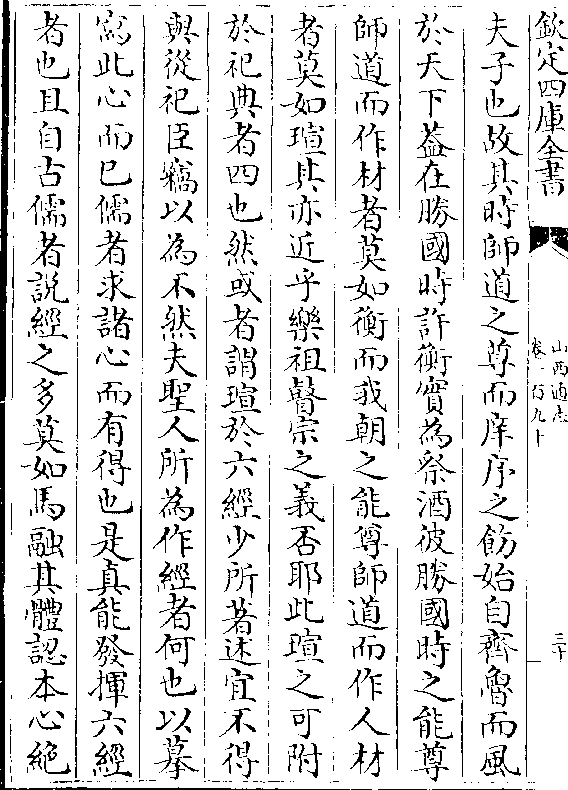 欽定四庫全書
山西通志
卷一百九十
三十
夫子也故其時師道之尊而庠序之飭始自齊魯而風
於天下葢在勝國時許衡實為祭酒彼勝國時之能尊
師道而作材者莫如衡而我朝之能尊師道而作人材
者莫如瑄其亦近乎樂祖瞽宗之義否耶此瑄之可附
於祀典者四也然或者謂瑄於六經少所著述宜不得
與從祀臣竊以為不然夫聖人所為作經者何也以摹
寫此心而已儒者求諸心而有得也是真能發揮六經
者也且自古儒者説經之多莫如馬融其體認本心絶